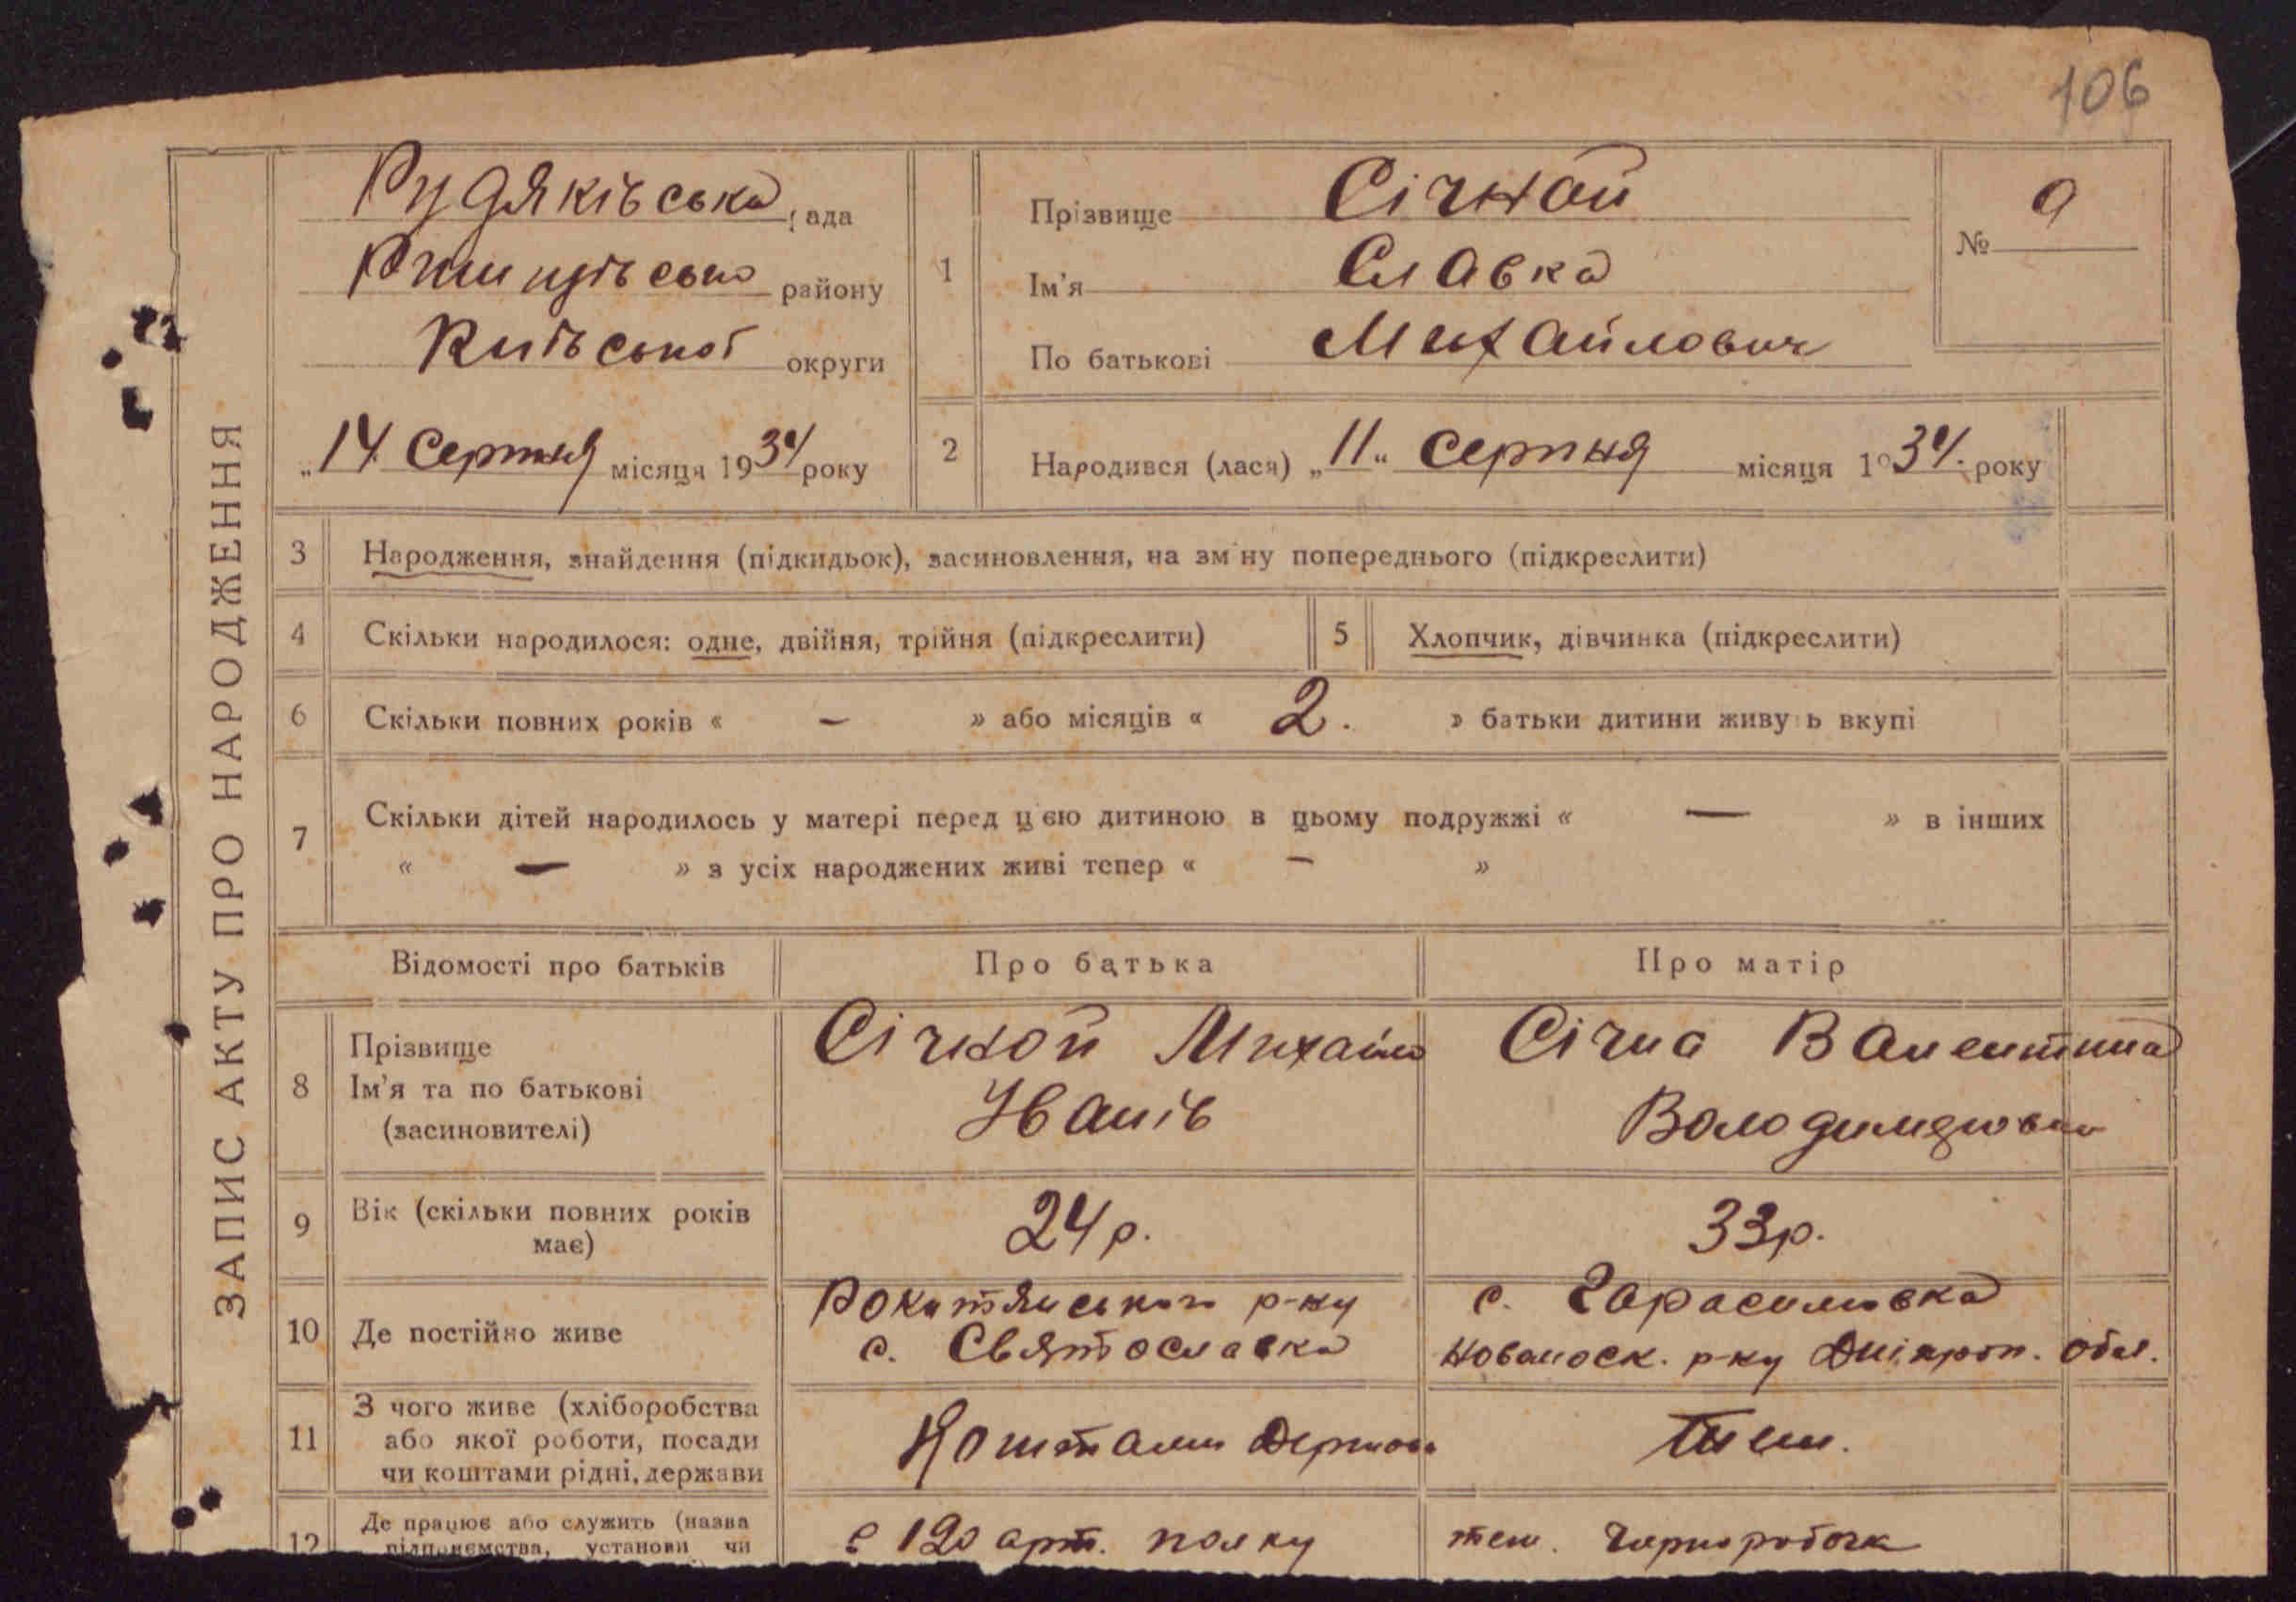 106
ЗАПИС АКТУ ПРО НАРОДЖЕННЯ
Рудяківська рада
району
Київської округи
„14 Серпня місяця 1934 року
1
Прізвище Січной
Ім'я Славка
По батькові Михайлович
№ 9
2
Народився (лася) „11“ серпня місяця 1934. року
3 Народження, знайдення (підкидьок), засиновлення, на зміну попереднього (підкреслити)
4 Скільки народилося: одне, двійня, трійня (підкреслити)
5 Хлопчик, дівчинка (підкреслити)
6 Скільки повних років « — » або місяців « 2. » батьки дитини живуть вкупі
7 Скільки дітей народилось у матері перед цією дитиною в цьому подружжі « — » в інших
« — » з усіх народжених живі тепер « — »
Відомості про батьків
Про батька
Про матір
8 Прізвище
Ім'я та по батькові
(засиновителі)
Січной Михайло
Іванів
Січна Валентина
9 Вік (скільки повних років
має)
24 р.
33 р.
10 Де постійно живе
р-ку
с. Святославка
с. Гарасимовка
р-ку Дніпроп. обл.
11 З чого живе (хліборобства
або якої роботи, посади
чи коштами рідні, держави
Коштами
12 Де працює або служить (назва
підприємства, установи чи
с 120 арт. полку
теш. Чорноробочя